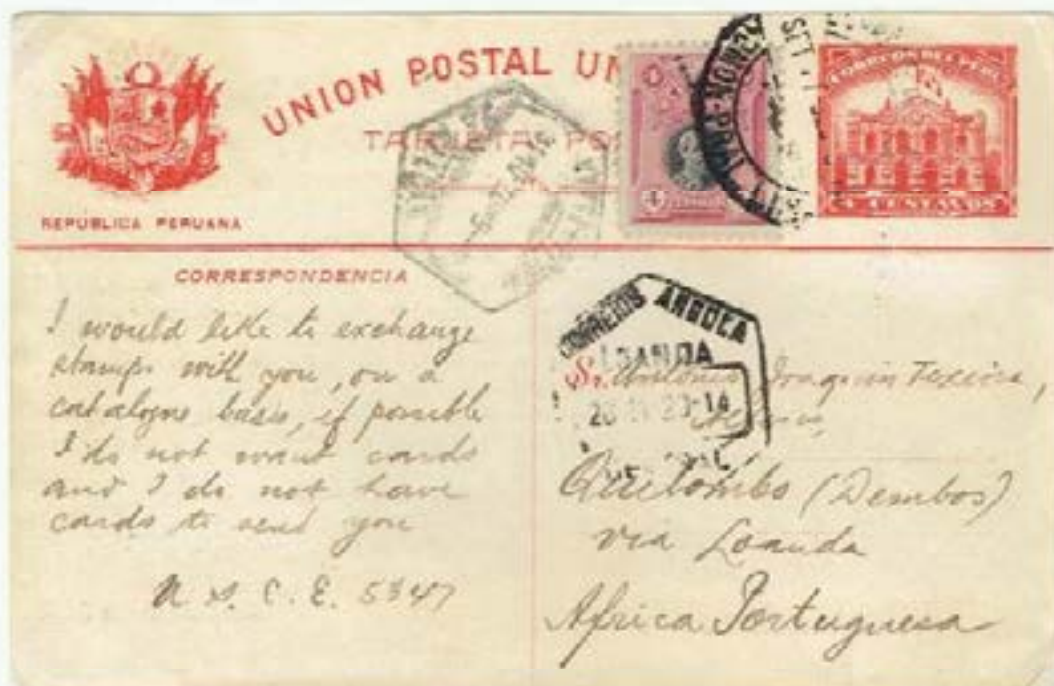 UNION POSTAL
TARJETA
CORREOS DEL PERU
4 CENTAVOS
REPÚBLICA PERUANA
CORRESPONDENCIA
I would like to exchange
stamps with you, on a
catalogue basis, if possible
I do not want cards
and I do not have
cards to send you
5347
CORREIOS ANGOLA
LOANDA
Sr. Antonio Joaquin Texeira,
Quitombo (Dembos)
via Loanda
Africa Portuguesa